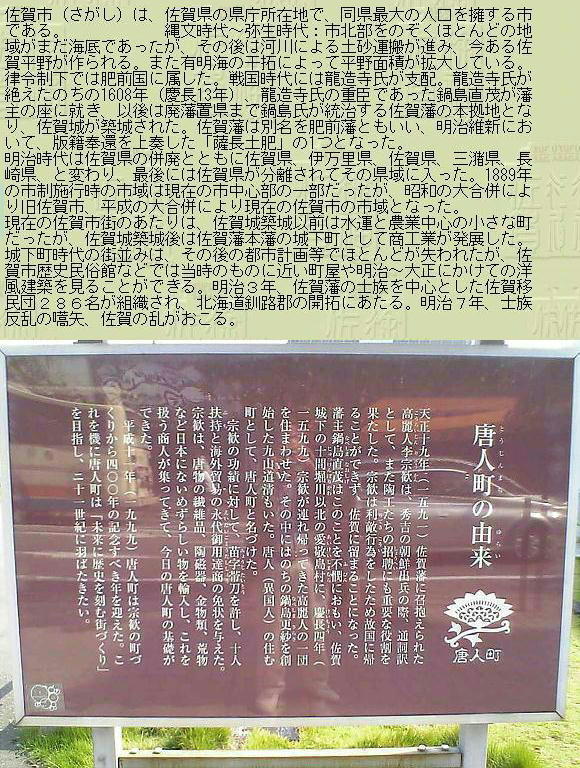 佐賀市（さがし）は、佐賀県の県庁所在地で、同県最大の人口を擁する市
である。　　　　　　縄文時代～弥生時代：市北部をのぞくほとんどの地
域がまだ海底であったが、その後は河川による土砂運搬が進み、今ある佐
賀平野が作られる。また有明海の干拓によって平野面積が拡大している。
律令制下では肥前国に属した。戦国時代には龍造寺氏が支配。龍造寺氏が
絶えたのちの1608年（慶長13年）、龍造寺氏の重臣であった鍋島直茂が藩
主の座に就き、以後は廃藩置県まで鍋島氏が統治する佐賀藩の本拠地とな
り、佐賀城が築城された。佐賀藩は別名を肥前藩ともいい、明治維新にお
いて、版籍奉還を上奏した「薩長土肥」の1つとなった。
明治時代は佐賀県の併廃とともに佐賀県、伊万里県、佐賀県、三潴県、長
崎県、と変わり、最後には佐賀県が分離されてその県域に入った。1889年
の市制施行時の市域は現在の市中心部の一部だったが、昭和の大合併によ
り旧佐賀市、平成の大合併により現在の佐賀市の市域となった。
現在の佐賀市街のあたりは、佐賀城築城以前は水運と農業中心の小さな町
だったが、佐賀城築城後は佐賀藩本藩の城下町として商工業が発展した。
城下町時代の街並みは、その後の都市計画等でほとんどが失われたが、佐
賀市歴史民俗館などでは当時のものに近い町屋や明治～大正にかけての洋
風建築を見ることができる。明治３年、佐賀藩の士族を中心とした佐賀移
民団２８６名が組織され、北海道釧路郡の開拓にあたる。明治７年、士族
反乱の嚆矢、佐賀の乱がおこる。
唐人町の由来
とうじんまち　ゆらい
天正十九年（一五九一）佐賀藩に召抱えられた
高麗人李宗歓は、秀吉の朝鮮出兵の際、通詞訳
として、また陶工たちの招聘にも重要な役割を
果たした。宗歓は利敵行為をしたため故国に帰
ることができず、佐賀に留まることになった。
藩主鍋島直茂はこのことを不憫におもい、佐賀
城下の十間堀川以北の愛敬島村に、慶長四年（
一五九九）宗歓が連れ帰ってきた高麗人の一団
を住まわせた。その中にはのちの鍋島更紗を創
始した九山道清もいた。唐人（異国人）の住む
町として、唐人町と名づけた。
宗歓の功績に対して、苗字帯刀を許し、十人
扶持と海外貿易の永代御用達商の免状を与えた。
宗歓は、唐物の繊維品、陶磁器、金物類、荒物
など日本にないめずらしい物を輸入し、これを
扱う商人が集ってきて、今日の唐人町の基礎が
できた。
平成十一年（一九九九）唐人町は宗歓の町づ
くりから四〇〇年の記念すべき年を迎えた。こ
れを機に唐人町は「未来に歴史を刻む街づくり」
を目指し、二十一世紀に羽ばたきたい。
唐人町